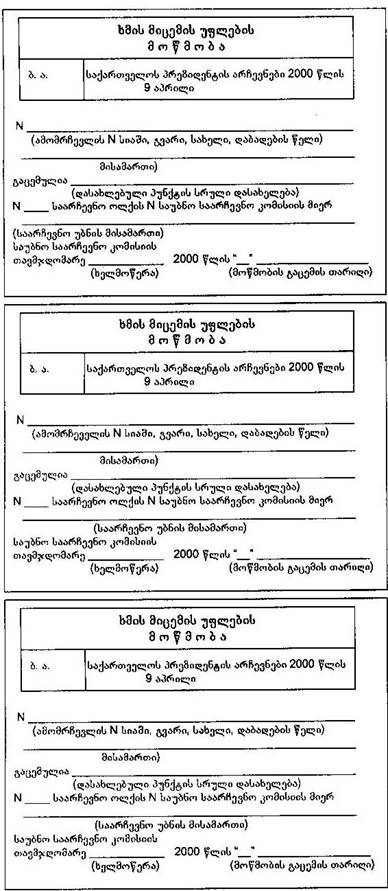 ხმის მიცემის უფლების
მ ო წ მ ო ბ ა
ბ. ა. საქართველოს პრეზიდენტის არჩევნები 2000 წლის
9 აპრილი
N
(ამომრჩევლის N სიაში, გვარი, სახელი, დაბადების წელი)
მისამართი)
გაცემულია
(დასახლებული პუნქტის სრული დასახელება)
N ____ საარჩევნო ოლქის N საუბნო საარჩევნო კომისიის მიერ
(საარჩევნო უბნის მისამართი)
საუბნო საარჩევნო კომისიის
თავმჯდომარე ____________ 2000 წლის "__" ____________
(ხელმოწერა) (მოწმობის გაცემის თარიღი)
ხმის მიცემის უფლების
მ ო წ მ ო ბ ა
ბ. ა. საქართველოს პრეზიდენტის არჩევნები 2000 წლის
9 აპრილი
N
(ამომრჩეველის N სიაში, გვარი, სახელი, დაბადების წელი)
მისამართი)
გაცემულია
(დასახლებული პუნქტის სრული დასახელება)
N ____ საარჩევნო ოლქის N საუბნო საარჩევნო კომისიის მიერ
(საარჩევნო უბნის მისამართი)
საუბნო საარჩევნო კომისიის
თავმჯდომარე ____________ 2000 წლის "__" ____________
(ხელმოწერა) (მოწმობის გაცემის თარიღი)
ხმის მიცემის უფლების
მ ო წ მ ო ბ ა
ბ. ა. საქართველოს პრეზიდენტის არჩევნები 2000 წლის
9 აპრილი
N
(ამომრჩევლის N სიაში, გვარი, სახელი, დაბადების წელი)
მისამართი)
გაცემულია
(დასახლებული პუნქტის სრული დასახელება)
N ____ საარჩევნო ოლქის N საუბნო საარჩევნო კომისიის მიერ
(საარჩევნო უბნის მისამართი)
საუბნო საარჩევნო კომისიის
თავმჯდომარე ____________ 2000 წლის "__" ____________
(ხელმოწერა) (მოწმობის გაცემის თარიღი)